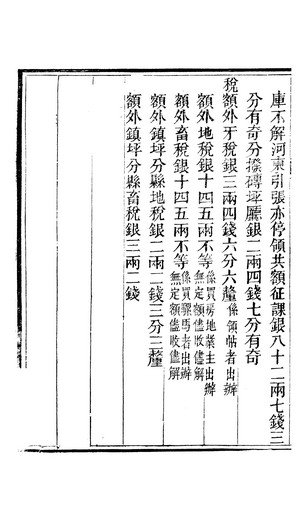 庫不解河東引張亦停領共額征課銀八十二兩七錢三
分有奇分撥磚坪廳銀二兩四錢七分有奇
稅額外牙稅銀三兩四錢六分六釐係領帖者出辦
額外地稅銀十四五兩不等係買房地業主出辦無定額儘收儘解
額外畜稅銀十四五兩不等係買騾馬者出辦無定額儘收儘解
額外鎮坪分縣地稅銀二兩二錢三分三釐
額外鎮坪分縣畜稅銀三兩二錢